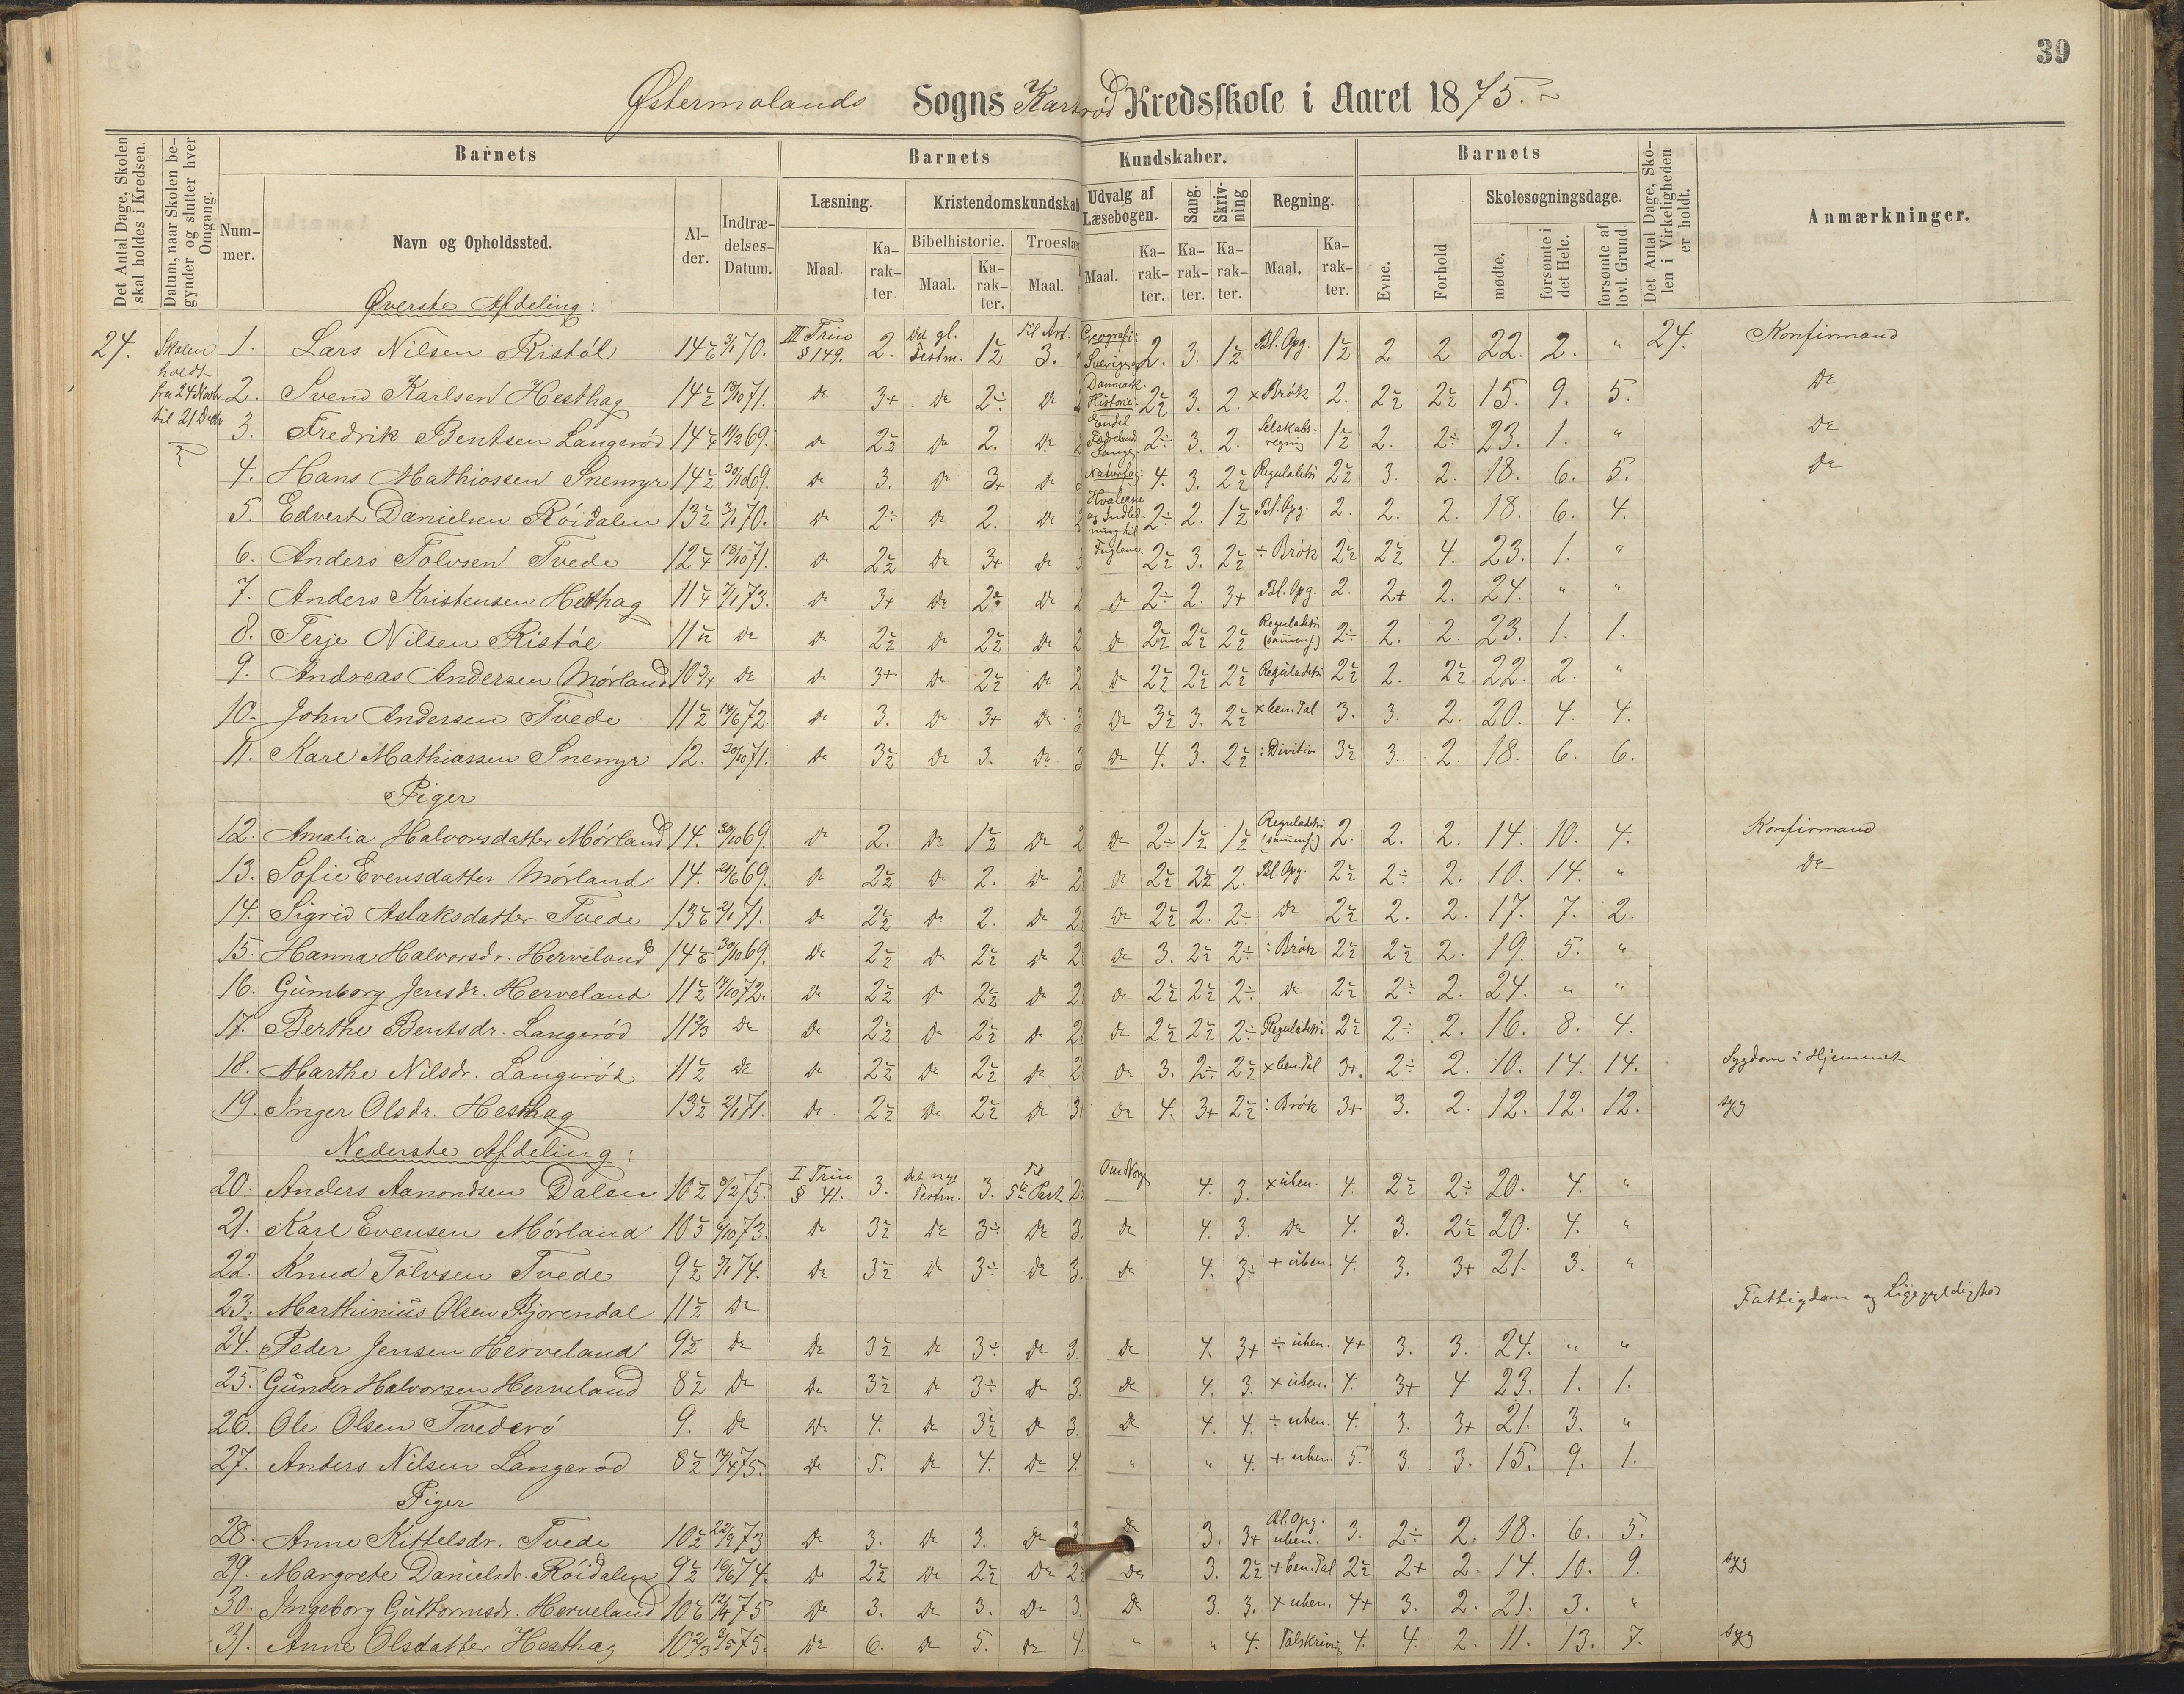 39
Østermolands Sogns Kartrød Kredsskole i Aaret 1875.
Det Antal Dage, Skolen skal holdes i Kredsen.
Datum, naar Skolen begynder og slutter hver Omgang.
Barnets
Nummer.
Navn og Opholdssted.
Alder.
Indtrædelses-Datum.
Barnets Kundskaber.
Læsning.
Maal.
Karakter.
Kristendomskundskab
Bibelhistorie.
Maal.
Karakter.
Troeslær
Maal.
Udvalg af Læsebogen.
Maal.
Karakter.
Sang.
Karakter.
Skrivning
Karakter.
Regning.
Maal.
Karakter.
Barnets
Evne.
Forhold
Skolesøgningsdage.
mødte.
forsømte i det Hele.
forsømte af lovl. Grund.
Det Antal Dage, Skolen i Virkeligheden er holdt.
Anmærkninger.
Øverste Afdeling:
24. Skolen holdt fra 24 Novbr til 21 Decbr
1. Lars Nilsen Ristøl 70. III Trin § 149. 2. Det gl. Testm. 1½ til Art. 3. Geografi: Sverige og 2. 3. 1½ Bl. Opg. 1½ 2 2 22. 2. " 24. Konfirmand
2. Svend Karlsen Hesthag 14½ 71. do 3+ do 2÷ do Danmark. Historie: 2½ 3. 2. × Brök 2. 2½ 2½ 15. 9. 5. do
3. Fredrik Bentsen Langerød 14¼ 69. do 2½ do 2. do Endel 2÷ 3. 2. Selskabsregning 1½ 2. 2÷ 23. 1. " do
4. Hans Mathiassen Snemyr 14½ 30/10 69. do 3. do 3+ do Naturfag: 4. 3. 2½ Reguladetri 2½ 3. 2. 18. 6. 5. do
5. Edvert Danielsen Röidalen 13½ 70. do 2÷ do 2. do Hvalerne og Indledning til 2÷ 2. 1½ Bl. Opg. 2. 2. 2. 18. 6. 4.
6. Anders Tolvsen Tvede 12¼ 71. do 2½ do 3+ do Fuglene. 2½ 3. 2½ ÷ Brök 2½ 2½ 4. 23. 1. "
7. Anders Kristensen Hesthag 11¼ 73. do 3+ do 2÷ do 2 do 2÷ 2. 3+ Bl. Opg. 2. 2+ 2. 24. " "
8. Terje Nilsen Ristøl 11½ do do 2½ do 2½ do 2 do 2½ 2½ 2½ Reguladetri (sammens.) 2÷ 2. 2. 23. 1. 1.
9. Andreas Andersen Mørland 10¾ do do 3+ do 2½ do 2 do 2½ 2½ 2½ Reguladetri 2½ 2. 2½ 22. 2. "
10. John Andersen Tvede 11½ 14/6 72. do 3. do 3+ do 3 do 3½ 3. 2½ × ben. Tal 3. 3. 2. 20. 4. 4.
11. Karl Mathiassen Snemyr 12. 30/10 71. do 3½ do 3. do 3 do 4. 3. 2½ : Division 3½ 3. 2. 18. 6. 6.
Piger
12. Amalia Halvorsdatter Mørland 14. 30/10 69. do 2. do 1½ do 2 do 2÷ 1½ 1½ Reguladetri (sammens.) 2. 2. 2. 14. 10. 4. Konfirmand
13. Sofie Evensdatter Mørland 14. 69. do 2½ do 2. do 2 do 2½ 2½ 2. Bl. Opg. 2½ 2÷ 2. 10. 14. " do
14. Sigrid Aslaksdatter Tvede 71. do 2½ do 2. do 2 do 2½ 2. 2÷ do 2½ 2. 2. 17. 7. 2.
15. Hanna Halvorsdr. Herveland 30/10 69. do 2½ do 2½ do 2 do 3. 2½ 2÷ : Brök 2½ 2½ 2. 19. 5. "
16. Gumborg Jensdr. Herveland 11½ 14/10 72. do 2½ do 2½ do 2 do 2½ 2½ 2÷ do 2½ 2÷ 2. 24. " "
17. Berthe Bentsdr. Langerød 11⅔ do do 2½ do 2½ do 2 do 2½ 2½ 2÷ Reguladetri 2½ 2÷ 2. 16. 8. 4.
18. Marthe Nilsdr. Langerød 11½ do do 2½ do 2½ do 2 do 3. 2÷ 2½ × ben. Tal 3+. 2÷ 2. 10. 14. 14. Sygdom i Hjemmet
19. Inger Olsdr. Hesthag 13½ 2/1 71. do 2½ do 2½ do 3 do 4. 3+ 2½ : Brök 3+ 3. 2. 12. 12. 12. syg
Nederste Afdeling:
20. Anders Aanondsen Dalen 10½ 75. I Trin § 41. 3. det nye Testm. 3. til 5te Part Om Norge 4. 3. × uben. 4. 2½ 2÷ 20. 4. "
21. Karl Evensen Mørland 73. do 3½ do 3÷ do 3. do 4. 3. do 4. 3. 2½ 20. 4. "
22. Knud Tolvsen Tvede 9½ 74. do 3½ do 3÷ do 3. do 4. 3÷ + uben. 4. 3. 3+ 21. 3. "
23. Marthinius Olsen Bjorendal 11½ do Fattigdom og Ligegyldighed
24. Peder Jensen Herveland 9½ do do 3½ do 3÷ do 3. do 4. 3+ ÷ uben. 4+ 3. 3. 24. " "
25. Gunder Halvorsen Herveland 8½ do do 3½ do 3÷ do 3. do 4. 3. × uben. 4. 3+ 4 23. 1. 1.
26. Ole Olsen Tvederö 9. do do 4. do 3½ do 3. do 4. 4. ÷ uben. 4. 3. 3+ 21. 3. "
27. Anders Nilsen Langerød 8½ 75. do 5. do 4. do 4. " " 4. + uben. 5. 3. 3. 15. 9. 1.
Piger
28. Anne Kittelsdr. Tvede 10½ 22/9 73 do 3. do 3. do 3. do 3. 3+ Bl. Opg. uben. 3. 2÷ 2. 18. 6. 5.
29. Margrete Danielsdr. Röidalen 9½ 16/6 74. do 2½ do 2½ do 2½ do 3. 2½ + ben. Tal 2½ 2+ 2. 14. 10. 9. syg
30. Ingeborg Guttormsdr. Herveland 12/4 75 do 3. do 3. do 3. do 3. 3. × uben. 4+ 3. 2. 21. 3. "
31. Anne Olsdatter Hesthag 10⅔ 3/5 75. do 6. do 5. do 4. " " 4. Talskrivning 4. 4. 2. 11. 13. 7. syg